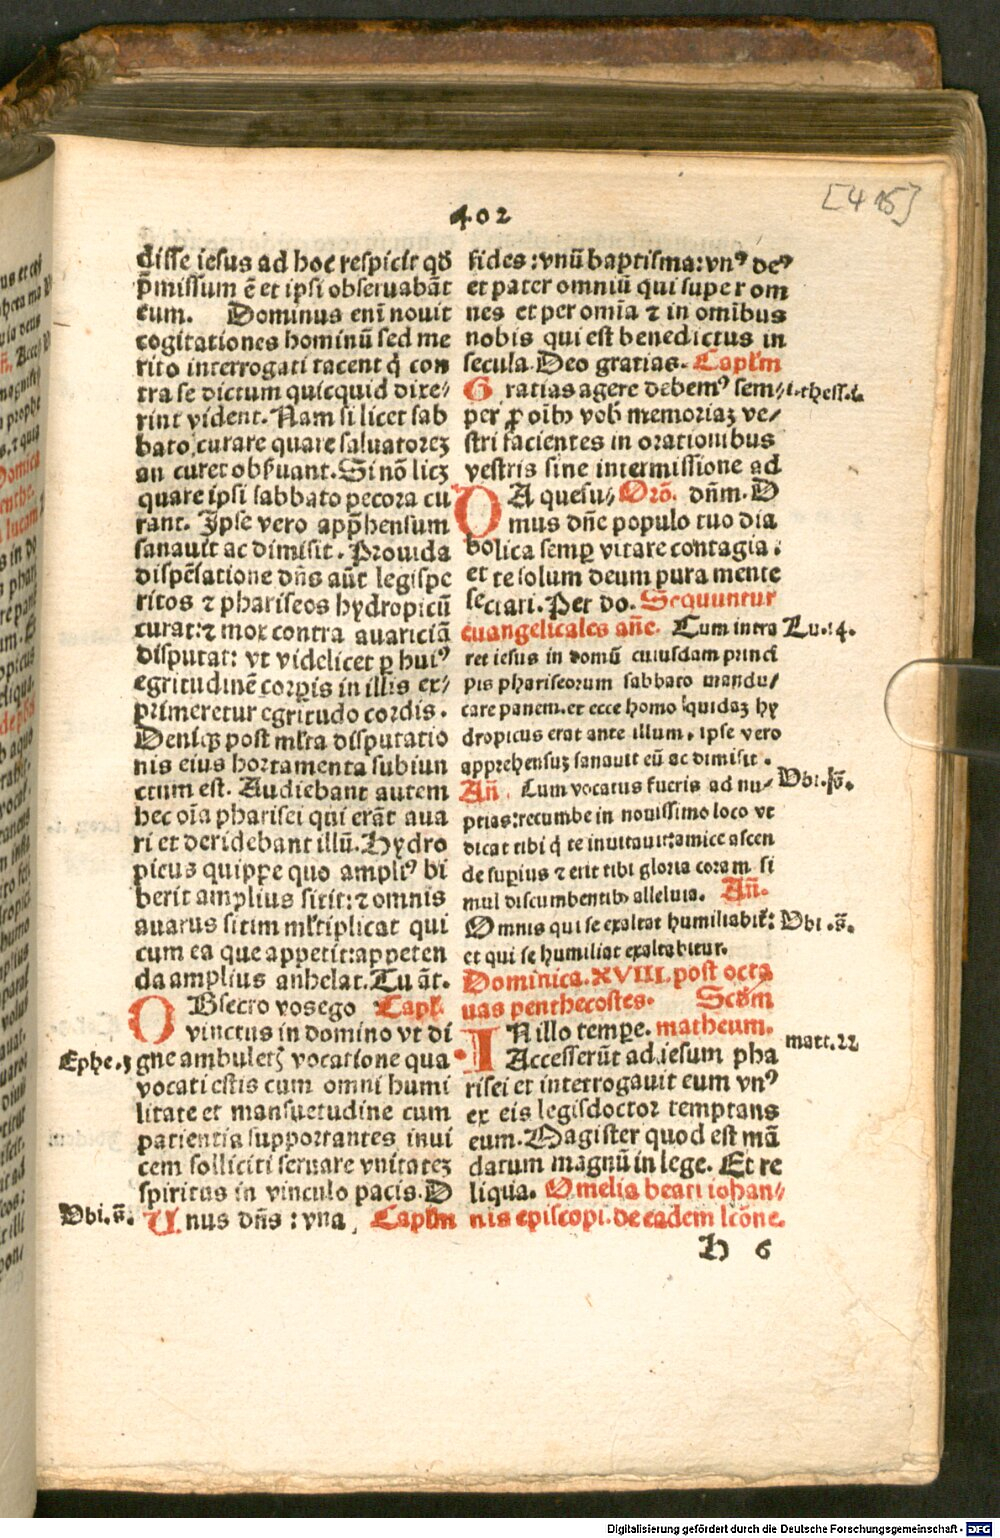 [415]
402
disse iesus ad hoc respicit qđ
p̄missum ē et ipsi obseruabāt
eum. Dominus eni nouit
cogitationes hominū sed me
rito interrogati tacent q̇ con
tra se dictum quicquid dire⸗
rint vident. Nam si licet sab
bato curare quare saluatorēꝫ
an curet obẜuant. Si nō licꝫ
quare ipsi sabbato pecora cu
rant. Ipse vero app̄hensum
sanauit ac dimisit. Prouida
dispēsatione dn̄s aūt legispe
ritos ⁊ phariseos hydropicū
curat: ⁊ mox contra auariciā
disputat: vt videlicet ꝑ huiꝰ
egritudinē corꝑis in illis ex⸗
primeretur egritudo cordis.
Deniqꝫ post ml̄ta disputatio
nis eius hortamenta subiun
ctum est. Audiebant autem
hec oīa pharisei qui erāt aua
ri et deridebant illū. Hydro
picus quippe quo ampliꝰ bi
berit amplius sitit: ⁊ omnis
auarus sitim ml̄tiplicat qui
cum ea que appetit: appeten
da amplius anhelat. Tu āt.
OBsecro vos ego Capl̄.
vinctus in domino vt di
Ephe.3 gne ambuletꝭ vocatione qua
vocati estis cum omni humi
litate et mansuetudine cum
patientia supportantes inui
cem solliciti seruare vnitateꝫ
spiritus in vinculo pacis. D
Vbi.s̄. Unus dn̄s: vna Capl̄m
fides: vnū baptisma: vnꝰ deꝰ
et pater omniū qui super om
nes et per omīa ⁊ in omībus
nobis qui est benedictus in
secula. Deo gratias. Capl̄m
Gratias agere debemꝰ sem⸗ i.thess.i.
per ꝓ oībꝰ vob̄ memoriaꝫ ve⸗
stri facientes in orationibus
vestris sine intermissione ad
DA quesu⸗ Orō. dn̄m. D
mus dn̄e populo tuo dia
bolica semꝑ vitare contagia:
et te solum deum pura mente
sectari. Per do. Sequuntur
euangelicales an̄e. Cum intra Lu.14.
ret iesus in domū cuiusdam princi
pis phariseorum sabbato mandu⸗
care panem. et ecce homo quidaꝫ hy
dropicus erat ante illum. ipse vero
apprehensuꝫ sanauit eū ac dimisit.
An̄. Cum vocatus fueris ad nu⸗ Vbi.s̄.
ptias: recumbe in nouissimo loco vt
dicat tibi q̇ te inuitauit: amice ascen
de suꝑius ⁊ erit tibi gloria coram si
mul discumbentibꝰ alleluia. An̄.
Omnis qui se exaltat humiliabit᷑: Vbi.s̄.
et qui se humiliat exaltabitur.
Dominica. XVIII. post octa
uas penthecostes. Scd̄m
IN illo tempe. matheum.
Accesserūt ad iesum pha matt.22
risei et interrogauit eum vnꝰ
ex eis legisdoctor temptans
eum. Magister quod est mā
datum magnū in lege. Et re
liqua. Omelia beati iohan⸗
nis episcopi. de eadem lcōne.
H 6
Digitalisierung gefördert durch die Deutsche Forschungsgemeinschaft - DFG